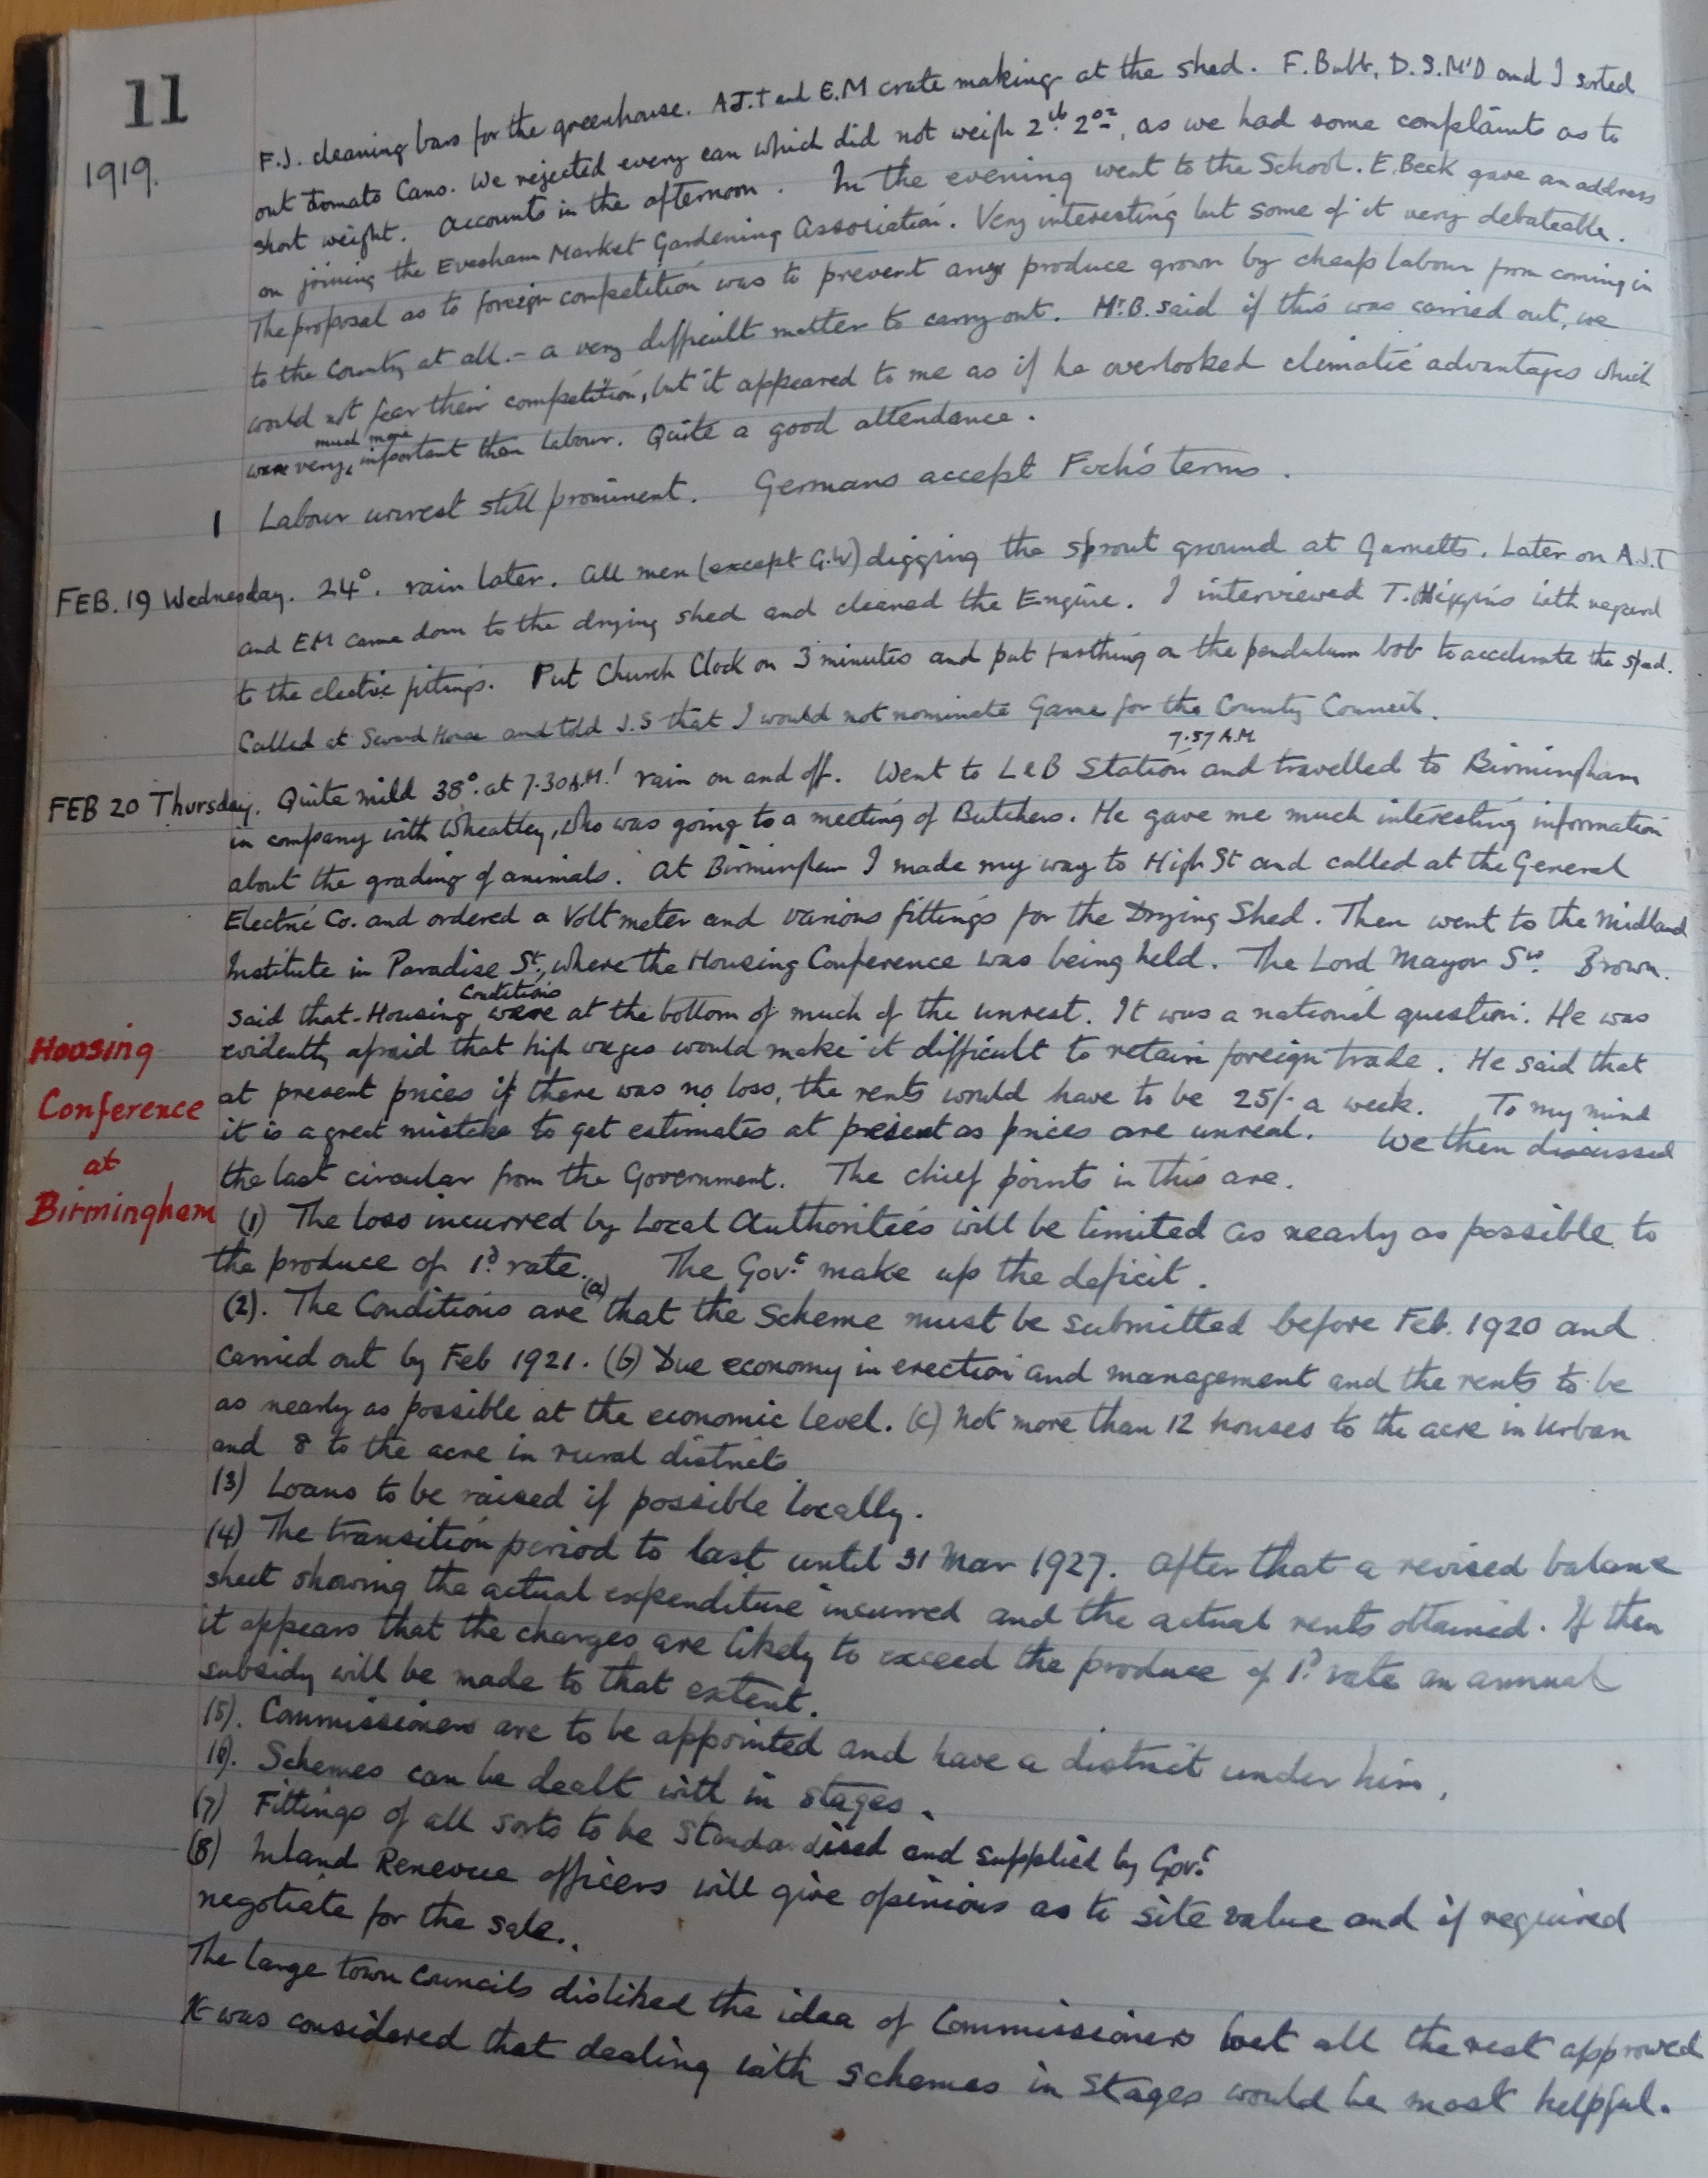 11
1919.
F.J. cleaning bars for the greenhouse. A.J.T and E.M crate making at the shed. F. Bubb, D.S.M'D and I sorted
out tomato Cans. We rejected every can which did not weigh 2lb 2oz, as we had some complaints as to
short weight. Accounts in the afternoon. In the evening went to the School. E. Beck gave an address
on joining the Evesham Market Gardening Association. Very interesting but some of it very debateable.
The proposal as to foreign competition was to prevent any produce grown by cheap labour from coming in
to the County at all. - a very difficult matter to carry out. Mr. B. said if this was carried out, we
would not fear their competition, but it appeared to me as if he overlooked climatic advantages which
were very much more important than labour. Quite a good attendance.
1 Labour unrest still prominent. Germans accept Foch's terms.
FEB. 19 Wednesday. 24°. rain later. All men (except G.W) digging the sprout ground at Garnetts. Later on A.J.T
and EM came down to the drying shed and cleaned the Engine. I interviewed T. Higgins with regard
to the electric fittings. Put Church Clock on 3 minutes and put farthing on the pendulum bob to accelerate the speed.
Called at House and told J.S that I would not nominate Game for the County Council.
7.57 A.M
FEB 20 Thursday. Quite mild 38° at 7.30 A.M.! rain on and off. Went to L&B Station and travelled to Birmingham
in company with Wheatley, who was going to a meeting of Butchers. He gave me much interesting information
about the grading of animals. At Birmingham I made my way to High St and called at the General
Electric Co. and ordered a Volt meter and various fittings for the Drying Shed. Then went to the Midland
Institute in Paradise St., where the Housing Conference was being held. The Lord Mayor Brown.
said that Housing Conditions were at the bottom of much of the unrest. It was a national question. He was
evidently afraid that high wages would make it difficult to retain foreign trade. He said that
at present prices if there was no loss, the rents would have to be 25/- a week. To my mind
it is a great mistake to get estimates at present as prices are unreal. We then discussed
the last circular from the Government. The chief points in this are.
Housing
Conference
at
Birmingham
(1) The loss incurred by Local Authorities will be limited as nearly as possible to
the produce of 1d rate. The Govt make up the deficit.
(2). The Conditions are (a) that the Scheme must be submitted before Feb. 1920 and
carried out by Feb 1921. (b) Due economy in erection and management and the rents to be
as nearly as possible at the economic level. (c) Not more than 12 houses to the acre in Urban
and 8 to the acre in rural districts
(3) Loans to be raised if possible locally.
(4) The transition period to last until 31 Mar 1927. After that a revised balance
sheet showing the actual expenditure incurred and the actual rents obtained. If then
it appears that the charges are likely to exceed the produce of 1d rate an annual
subsidy will be made to that extent.
(5). Commissioners are to be appointed and have a district under him.
(6). Schemes can be dealt with in stages.
(7) Fittings of all sorts to be standardised and supplied by Govt
(8) Inland Revenue officers will give opinions as to site value and if required
negotiate for the sale..
The large town Councils disliked the idea of Commissioners but all the rest approved
It was considered that dealing with schemes in stages would be most helpful.